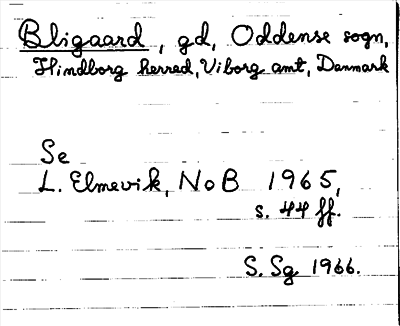 Bligaard, gd, Oddense sogn,
Hindborg herred, Viborg amt, Danmark
Se
L. Elmevik, NoB 1965,
s. 44 ff.
S. Sg 1966.